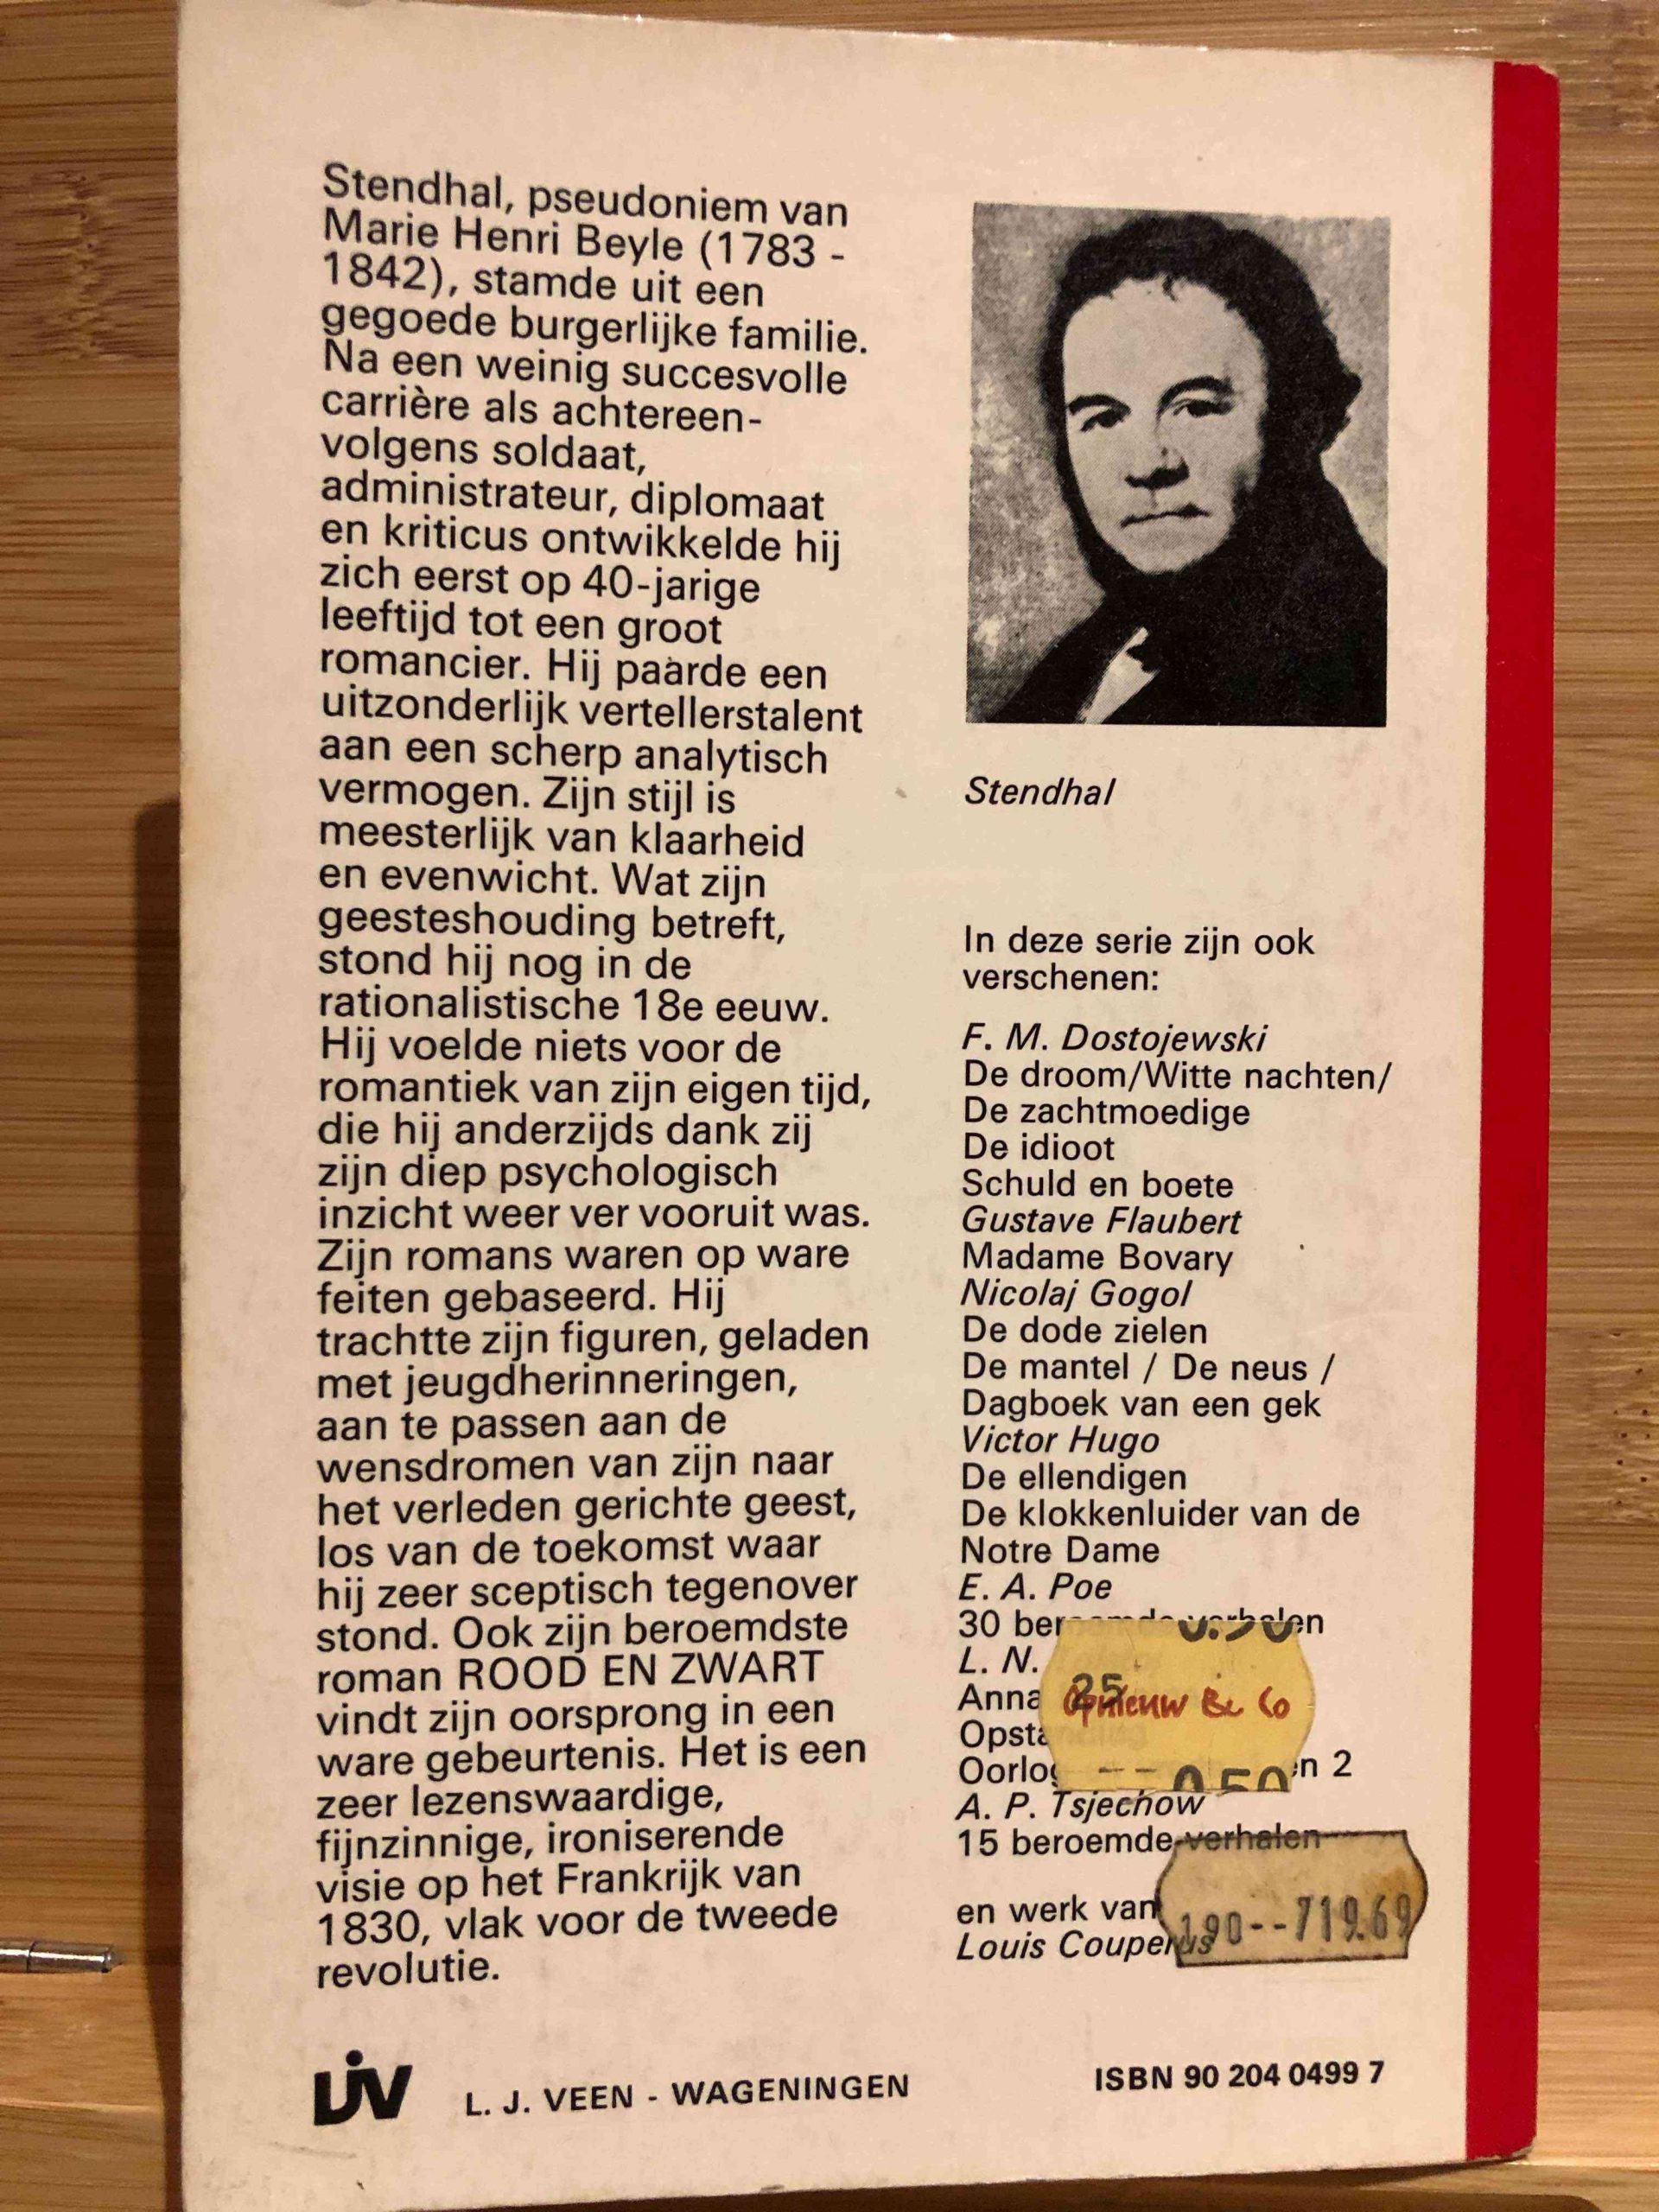 Stendhal, pseudoniem van
Marie Henri Beyle (1783 -
1842), stamde uit een
gegoede burgerlijke familie.
Na een weinig succesvolle
carrière als achtereen-
volgens soldaat,
administrateur, diplomaat
en kriticus ontwikkelde hij
zich eerst op 40-jarige
leeftijd tot een groot
romancier. Hij paarde een
uitzonderlijk vertellerstalent
aan een scherp analytisch
vermogen. Zijn stijl is
meesterlijk van klaarheid
en evenwicht. Wat zijn
geesteshouding betreft,
stond hij nog in de
rationalistische 18e eeuw.
Hij voelde niets voor de
romantiek van zijn eigen tijd,
die hij anderzijds dank zij
zijn diep psychologisch
inzicht weer ver vooruit was.
Zijn romans waren op ware
feiten gebaseerd. Hij
trachtte zijn figuren, geladen
met jeugdherinneringen,
aan te passen aan de
wensdromen van zijn naar
het verleden gerichte geest,
los van de toekomst waar
hij zeer sceptisch tegenover
stond. Ook zijn beroemdste
roman ROOD EN ZWART
vindt zijn oorsprong in een
ware gebeurtenis. Het is een
zeer lezenswaardige,
fijnzinnige, ironiserende
visie op het Frankrijk van
1830, vlak voor de tweede
revolutie.
Stendhal
In deze serie zijn ook
verschenen:
F. M. Dostojewski
De droom/Witte nachten/
De zachtmoedige
De idioot
Schuld en boete
Gustave Flaubert
Madame Bovary
Nicolaj Gogol
De dode zielen
De mantel / De neus /
Dagboek van een gek
Victor Hugo
De ellendigen
De klokkenluider van de
Notre Dame
E. A. Poe
30 beroemde verhalen
L. N.
Anna
Opstanding
2
A. P. Tsjechow
15 beroemde verhalen
en werk van
Louis Couperus
0.50
25
Opnieuw & Co
0.50
190--719.69
LJV
L. J. VEEN - WAGENINGEN
ISBN 90 204 0499 7